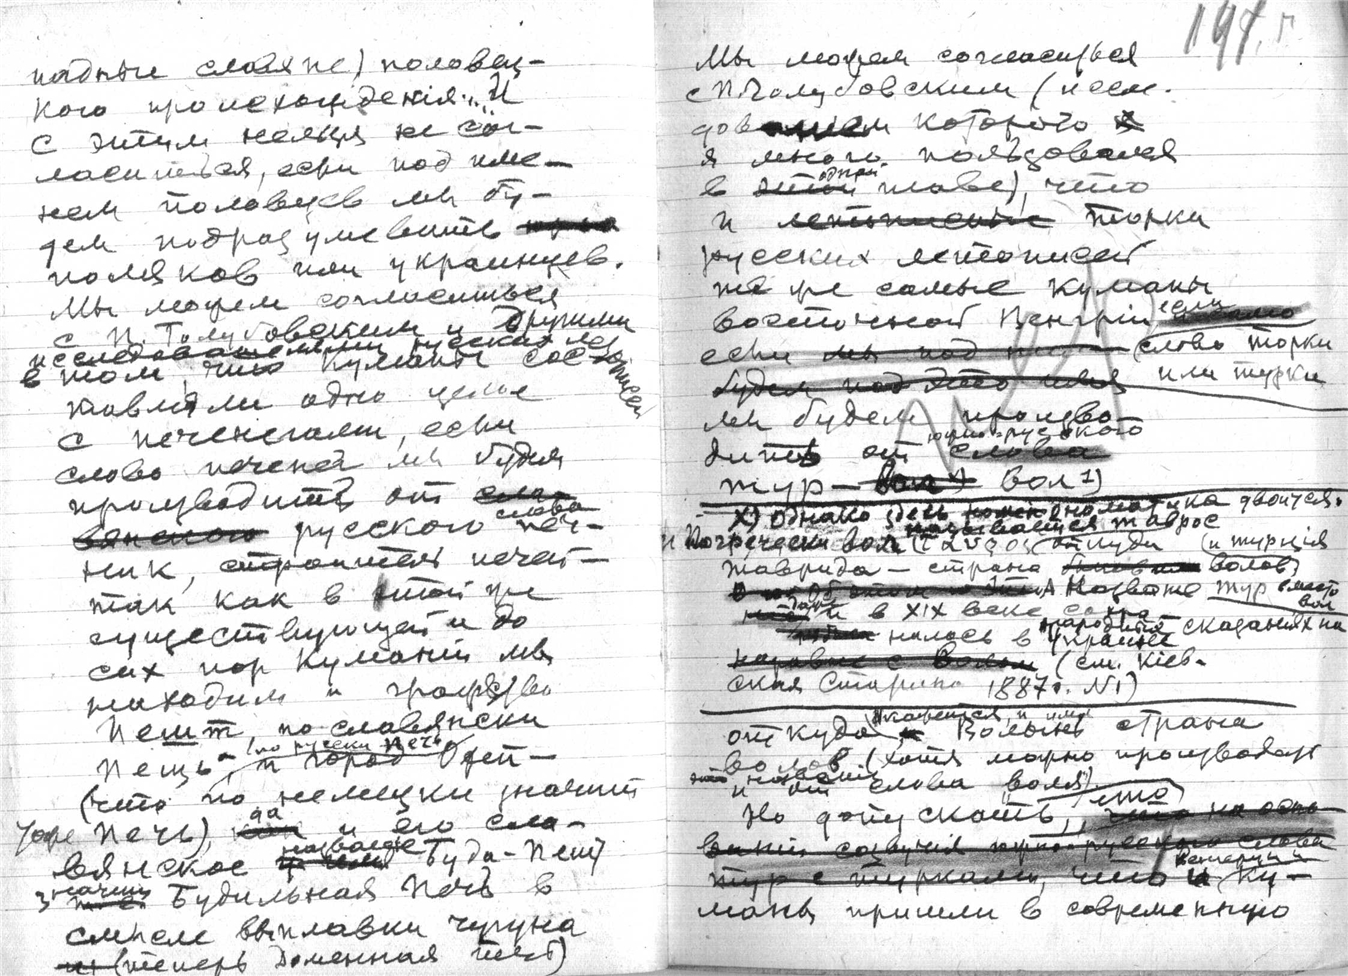 падные славяне) половец-
кого происхожденія... И
с этим нельзя не сог-
ласиться, если под име-
нем половцев мы бу-
дем подразумевать
поляков или украинцев.
Мы можем согласиться
с П. Голубовским и другими
исследователями русских летописей
в том, что Куманы сос-
тавляли одно целое
с печенегами, если
слово печенег мы будем
производить от
русского слова печ-
ник,
так как в этой же
существующей и до
сих пор Куманіи мы
находим и графство
Пешт по славянски
Пещь (по русски печь), и город Офен-
(что по немецки значит
тоже печь), да и его сла-
вянское название Буда-Пешт
значит Будильная печь в
смысле выплавки чугуна
(теперь доменная печь)
194. г
Мы можем согласиться
с П. Голубовским (исслед-
дованием которого
я много пользовался
в этой главе), что
и торки
русских летописей
те же самые Куманы
восточной Венгріи
если слово торки
или турки
мы будем произво-
дить от южно-русского
тур — вол 1)
X) Однако здесь двоится.
И по гречески вол называется таврос
(ταυρος) откуда (и турція
Таврида — страна волов)
А название тур вместо вол
даже и в XIX веке сохра-
нилось в народных сказаниях на
Украине (см. Кіев-
ская Старина 1887 г. N1)
откуда, кажется, и имя Волынь страна
волов (хотя можно производить
это название и от слова воля)
Но допускать, что
венгерскіе Ку-
маны пришли в современную